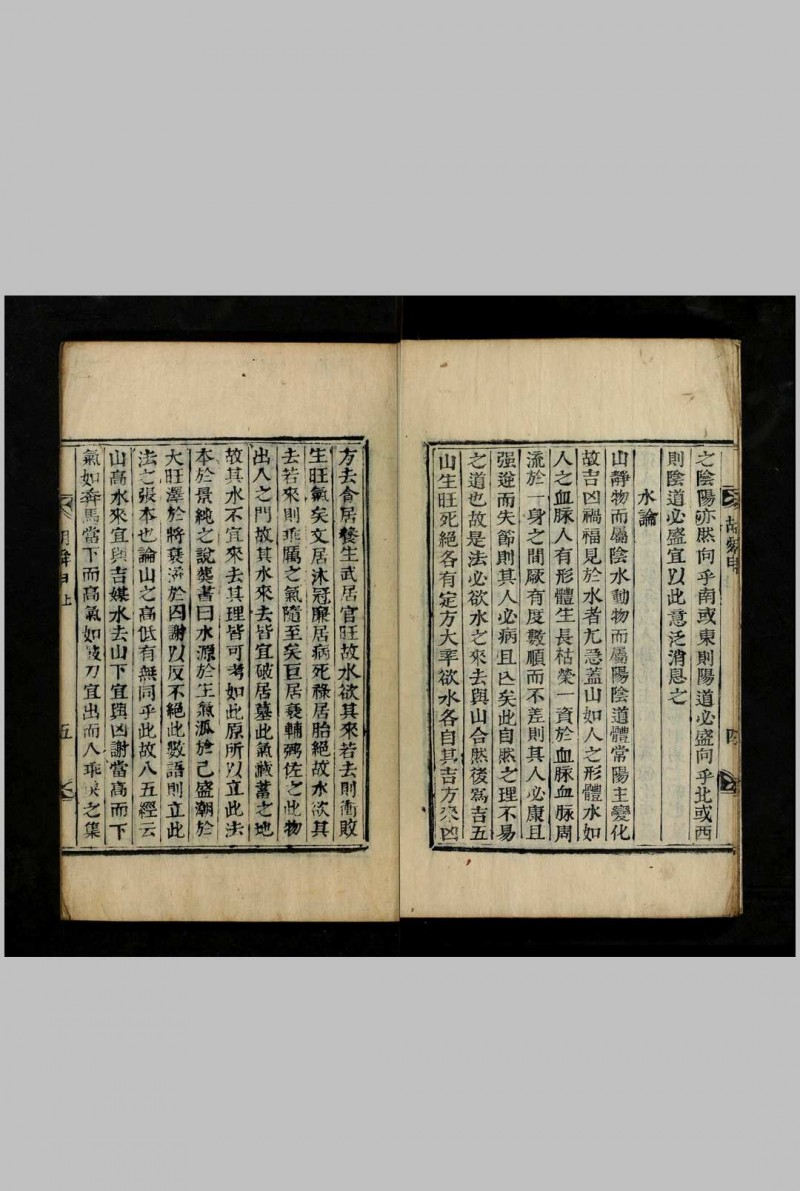 之陰陽亦然向乎南或東則陽道必盛向乎北或西
則陰道必盛宜以此意泛消息之
水論
山靜物而屬陰水動物而屬陽陰道體常陽主變化
故吉凶禍福見於水者尤急蓋山如人之形體水如
人之血脉人有形體生長枯榮一資於血脉血脉周
流於一身之間厥有度數順而不差則其人必康且
强逆而失節則其人必病且亾矣此自然之理不易
之道也故是法必欲水之來去與山合然後爲吉五
山生旺死絕各有定方大率欲水各自其吉方來凶
四
方去貪居養生武居官旺故水欲其來若去則衝敗
生旺氣矣文居沐冠廉居病死祿居胎絕故水欲其
去若來則乖厲之氣隨至矣巨居衰輔弼佐之此物
出入之門故其水來去皆宜破居墓此氣藏蓄之地
故其水不宜來去其理皆可考如此原所以立此法
本於景純之說葬書曰水源於生氣派於已盛潮於
大旺澤於將衰流於囚謝以反不絕此數語則立此
法之張本也論山之高低有無同乎此故八五經云
山高水來宜與吉媒水去山下宜與凶謝當高而下
氣如奔馬當下而高氣如 刀宜出而入乖戾之集
胡舜申上
五